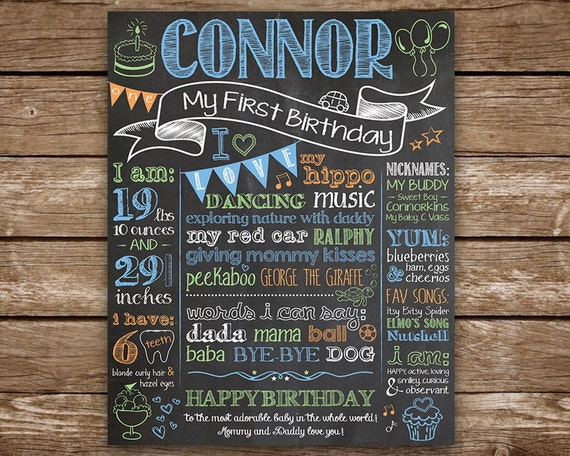 CONNOR
one
My First Birthday
I am:
19 lbs
10 ounces
AND
29 1/2
inches
i have:
6
blonde curly hair &
hazel eyes
I
LOVE
my hippo
DANCING music
exploring nature with daddy
my red car RALPHY
giving mommy kisses
peekaboo GEORGE THE GIRAFFE
words i can say:
dada mama ball
baba BYE-BYE DOG
HAPPY BIRTHDAY
to the most adorable baby in the whole world!
Mommy and Daddy love you!
NICKNAMES:
MY BUDDY
Sweet Boy
Connorkins
My Baby, C Vass
YUM:
blueberries
ham, eggs
& cheerios
FAV SONGS:
Itsy Bitsy Spider
ELMO'S SONG
Nutshell
i am:
HAPPY, active, loving
smiley, curious
& observant